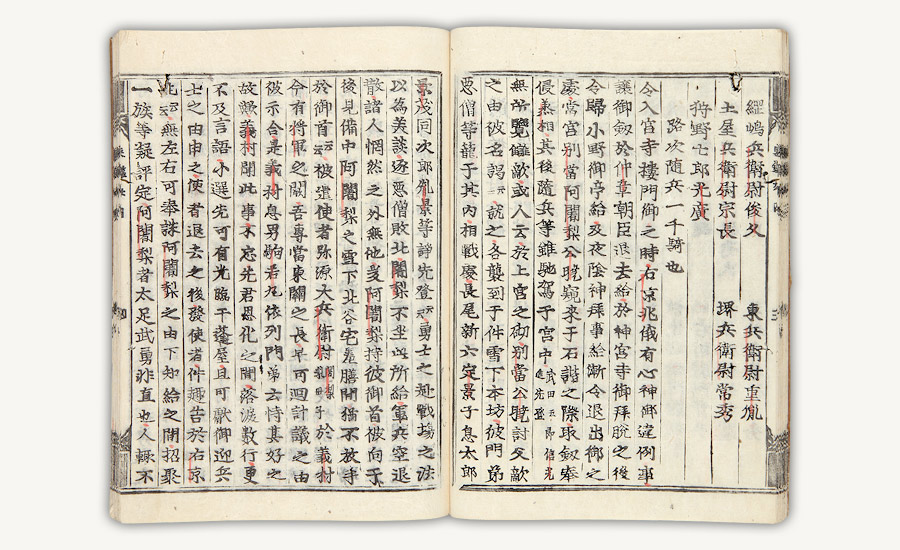 嶋兵衛尉俊久　東兵衛尉重胤
土屋兵衛尉宗長　堺兵衛尉常秀
狩野七郎光廣
路次随兵一千騎也
令入宮寺樓門御之時右京兆俄有心神御違例事
讓御劔於仲章朝臣退去給於神宮寺御拜脱之後
令歸小野御亭給及夜陰神拜事給漸令退出御之
處當宮別當阿闍梨公曉窺來于石諧之際取劔奉
侵丞相其後随兵等雖馳駕于宮中武田五郎信光先登
無所覽讎敵或人云於上宮之砌別當公曉討父敵
之由被名謁云々就之各襲到于件雪下本坊彼門弟
悪僧等籠于其内相戰處長尾新六定景子息太郎
景茂同次郎胤景等諍先登云々勇士之赴戰場之法
以為美談遂悪僧敗北闍梨不坐此所給軍兵空退
散諸人惘然之外無他爰阿闍梨持彼御首被向于
後見備中阿闍梨之雪下北谷宅羞膳間猶不放手
於御首云々被遣使者弥源太兵衛尉闍梨乳母子於義村
今有將軍之闕吾專當東關之長早可廻計議之由
被示合是義村息男駒若丸依列門弟去恃其好之
故歟義村聞此事不忘先君恩化之間落淚數行更
不及言語小選先可有光臨于蓬屋且可獻御迎兵
士之由申之使者退去之後發使者件趣告於右京
兆云々無左右可奉誅阿闍梨之由下知給之間招聚
一族等凝評定阿闍梨者太足武勇非直也人輙不